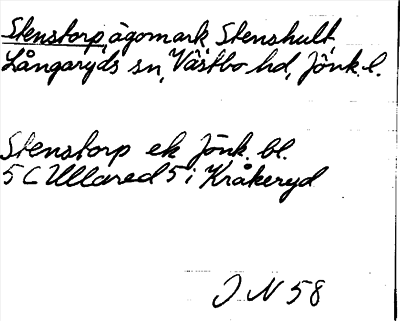 Stenstorp, ägomark, Stenshult,
Långaryds sn, Västbo hd, Jönk. l.
Stenstorp ek Jönk. bl.
5 C Ullared 5 i Kråkeryd
J N 58